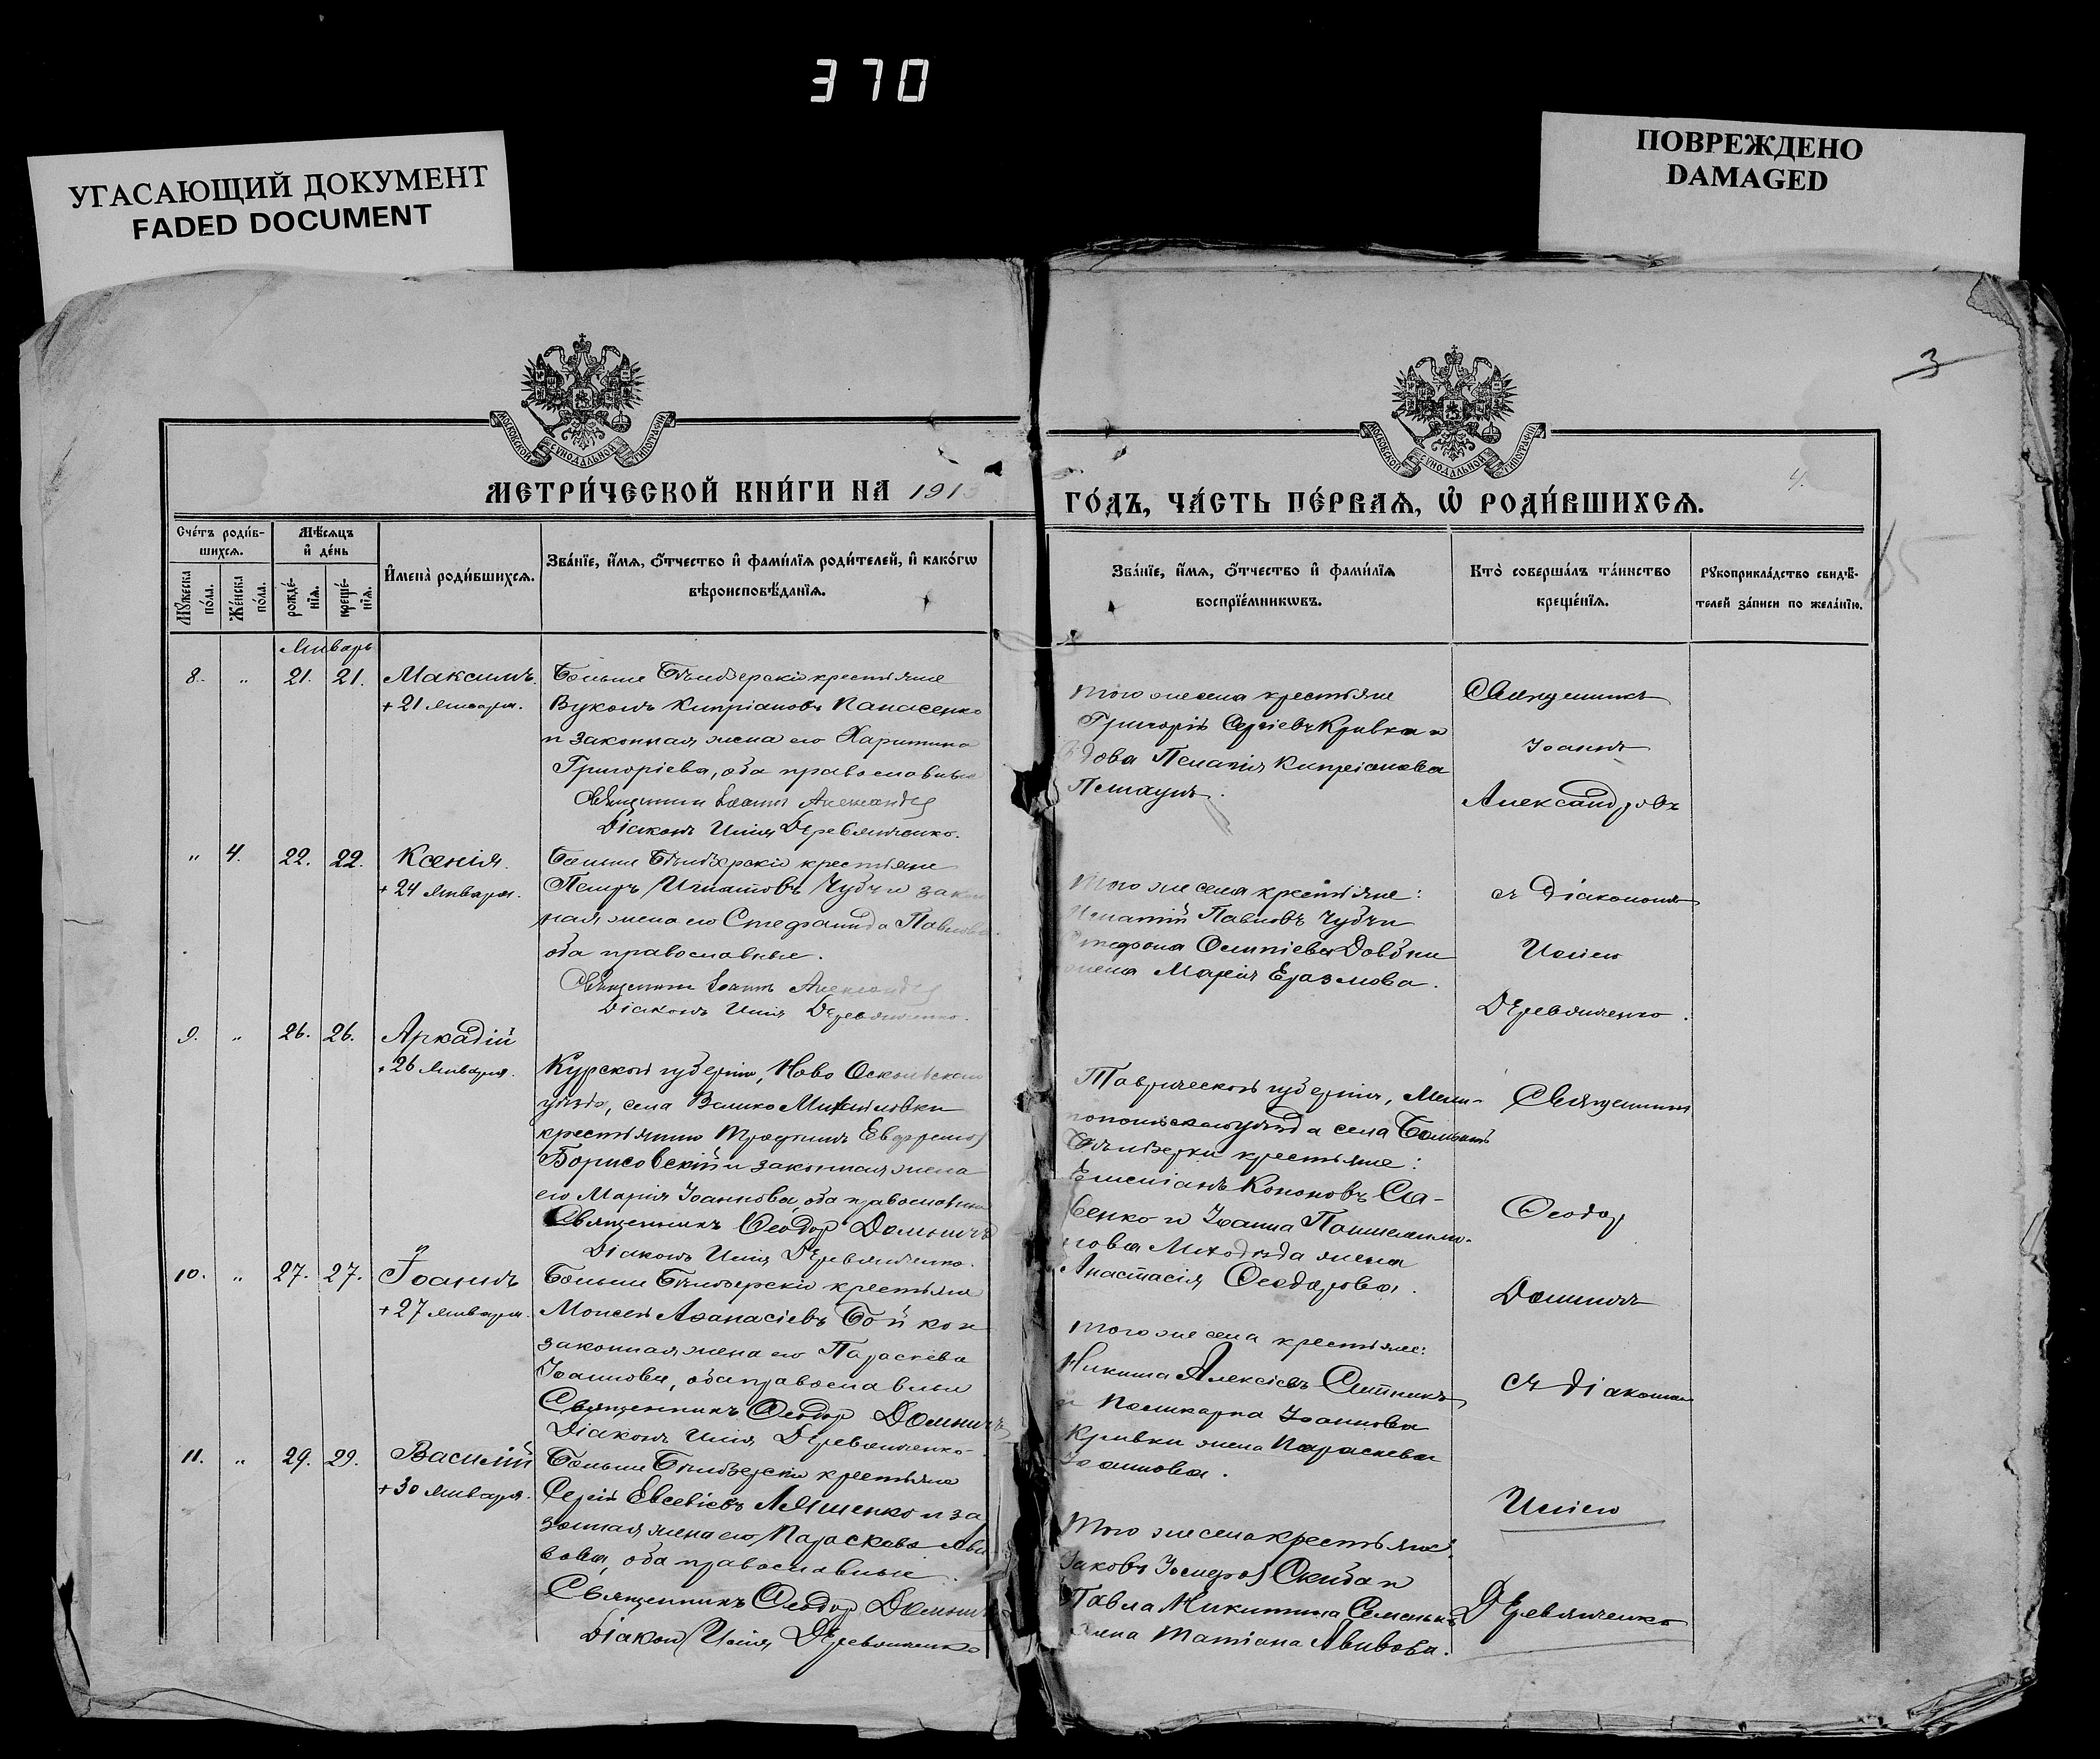 370
УГАСАЮЩИЙ ДОКУМЕНТ
FADED DOCUMENT
ПОВРЕЖДЕНО
DAMAGED
3
МОСКОВСКОЙ СѴНОДАЛЬНОЙ ТИПОГРАФІИ
МОСКОВСКОЙ СѴНОДАЛЬНОЙ ТИПОГРАФІИ
МЕТРИ́ЧЕСКОЙ КНИ́ГИ НА 1913
ГО́ДЪ, ЧА́СТЬ ПЕ́РВАѦ, Ѡ҆ РОДИ́ВШИХСѦ.
4.
Сче́тъ роди́в-
шихсѧ.
Мѣ́сѧцъ
и҆ де́нь
Мꙋ́жеска
по́ла.
Же́нска
по́ла.
рожде́-
нїѧ.
креще́-
нїѧ.
И҆мена̀ роди́вшихсѧ.
Зва́нїе, и҆́мѧ, ѻ҆́тчество и҆ фами́лїѧ роди́телей, и҆ како́гѡ
вѣроисповѣ́данїѧ.
Зва́нїе, и҆́мѧ, ѻ҆́тчество и҆ фами́лїѧ
воспрїе́мникѡвъ.
Кто̀ соверша́лъ та́инство
креще́нїѧ.
Рꙋкоприкла́дство свидѣ́-
телей за́писи по жела́нїю.
Январь
8. " 21. 21. Максимъ
+ 21 января.
Больше Бѣлозерскіе крестьяне
Вуколъ Кипріановъ Панасенко
и законная жена его Харитина
Григоріева, оба православные
Священникъ Іоаннъ Александровъ
Діаконъ Илія Деревянченко.
Того же села крестьяне
Григорій Сергіевъ Кривка и
вдова Пелагія Кипріанова
Священникъ
Іоаннъ
Александровъ
" 4. 22. 22. Ксенія.
+ 24 января.
Больше Бѣлозерскіе крестьяне
Петръ Игнатовъ Чубъ и закон
ная жена его Стефанида Павлова
оба православные.
Священникъ Іоаннъ Александровъ
Діаконъ Илія Деревянченко.
Того же села крестьяне:
Игнатій Павловъ Чубъ и
жена Марія Еразмова.
съ діакономъ
Иліею
Деревянченко.
9. " 26. 26. Аркадій
+ 26 января.
Курской губерніи, Ново Оскольскаго
уѣзда, села Велико Михайловки
Борисовскій и законная жена
его Марія Іоаннова, оба православные
Священникъ Ѳеодоръ
Діаконъ Илія Деревянченко.
Таврической губерніи, Мели-
топольскаго уѣзда села Большой
Бѣлозерки крестьяне:
Емеліанъ Кононовъ Са-
венко и
жена
Анастасія Ѳеодорова.
Священникъ
Ѳеодоръ
10. " 27. 27. Іоаннъ
+ 27 января.
Больше Бѣлозерскіе крестьяне
Моисей Аѳанасіевъ Бойко и
законная жена его Параскева
Іоаннова, оба православные
Священникъ Ѳеодоръ
Діаконъ Илія Деревянченко.
Того же села крестьяне:
Никита Алексіевъ Ситникъ
и Поликарпа Іоаннова
Кривки жена Параскева
Іоаннова.
съ діакономъ
Иліею
11. " 29. 29. Василій
+ 30 января.
Больше Бѣлозерскіе крестьяне
Сергій Евсевіевъ Ляшенко и за
конная жена его Параскева
оба православные.
Священникъ Ѳеодоръ
Діаконъ Илія Деревянченко
Того же села крестьяне:
Іаковъ Іосифовъ Скиба и
Павла Никитина
жена Татіана Авивова.
Деревянченко